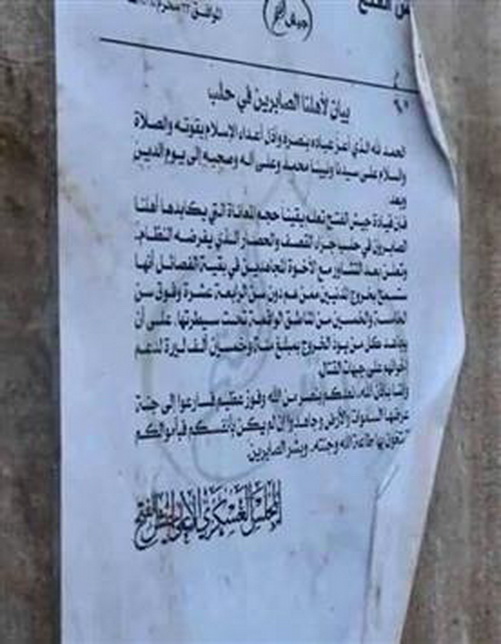 ش الفتح
الموافق ٢٢ محرم
جيش الفتح
بيان لأهلنا الصابرين في حلب
الحمد لله الذي أعز عباده بنصره وأذل أعداء الإسلام بقوته والصلاة
والسلام على سيدنا ونبينا محمد وعلى آله وصحبه إلى يوم الدين
وبعد
فإن قيادة جيش الفتح تعلم يقينا حجم المعاناة التي يكابدها أهلنا
الصابرون في حلب جراء القصف والحصار الذي يفرضه النظام،
وتعلن بعد التشاور مع الأخوة المجاهدين في بقية الفصائل أنها
ستسمح بخروج المدنيين ممن هم دون سن الرابعة عشرة وفوق سن
الخامسة والخمسين من المناطق الواقعة تحت سيطرتها، على أن
يساهد كل من يود الخروج بمبلغ مئة وخمسين ألف ليرة لدعم
أخوانه على جبهات القتال.
وإننا بإذن الله، نعدكم بنصر من الله وفوز عظيم فسارعوا إلى جنة
عرضها السماوات والأرض وجاهدوا إن لم يكن بأنفسكم فبأموالكم
تبتغون بها طاعة الله وجنته، وبشر الصابرين.
المجلس العسكري الأعلى لجيش الفتح